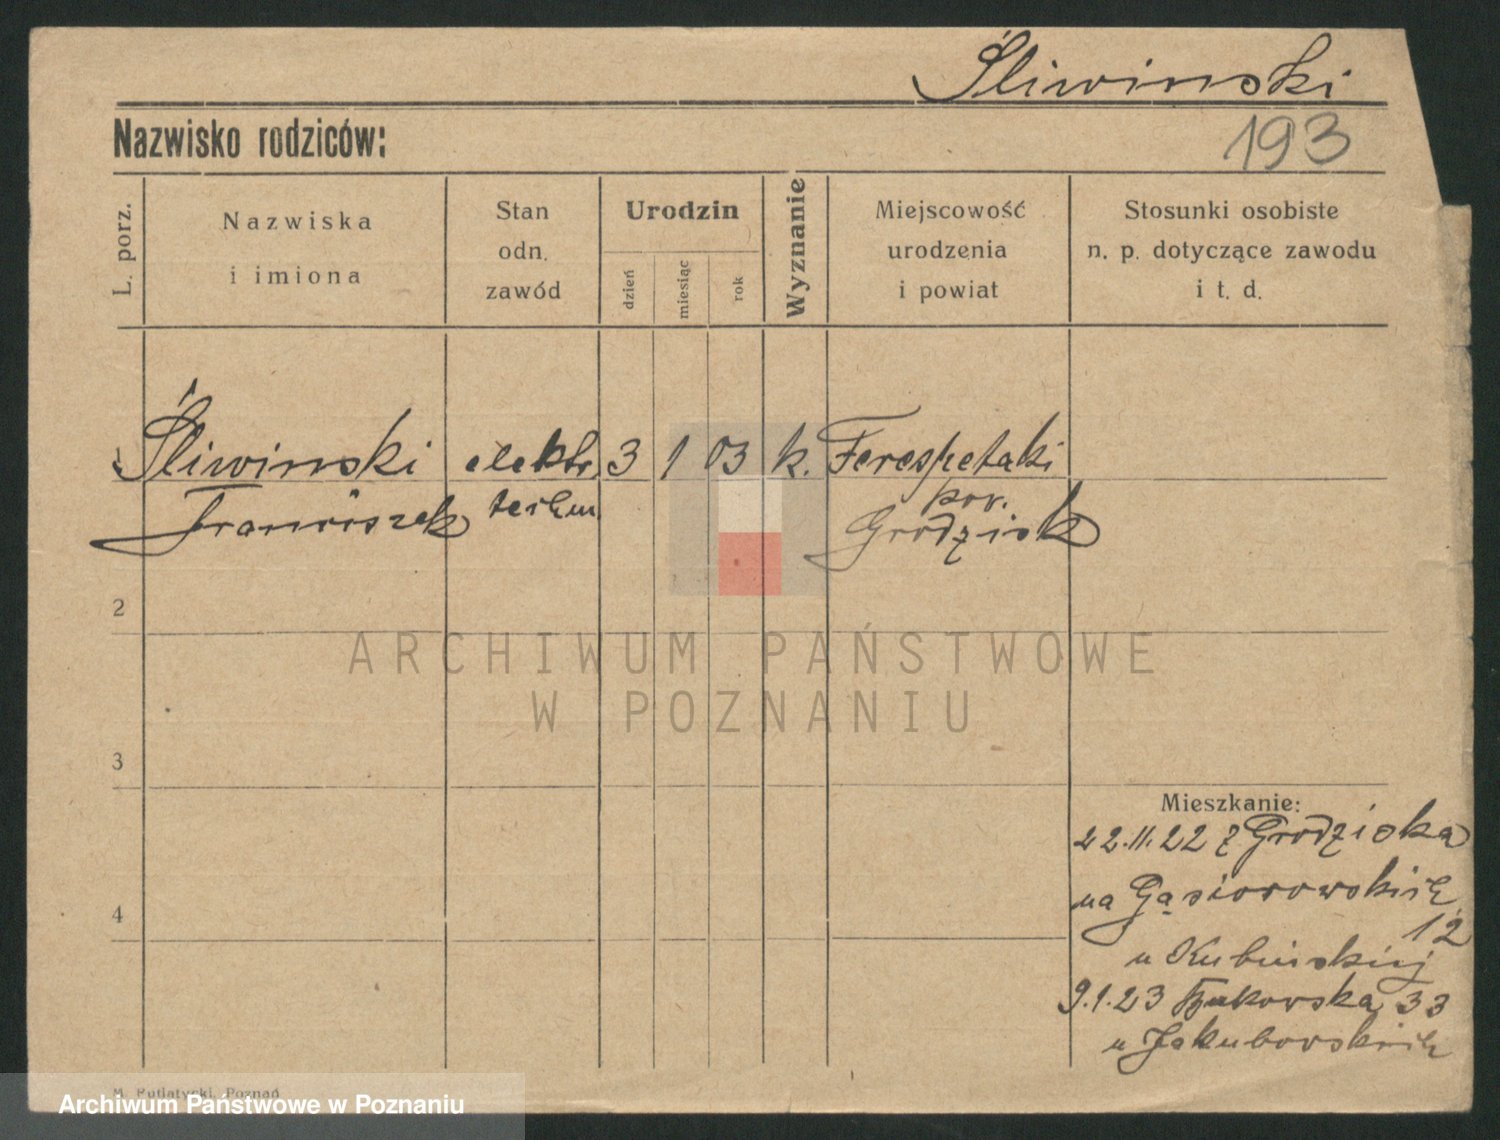 Śliwinski
Nazwisko rodziców:
193
L. porz.
Nazwiska
i imiona
Stan
odn.
zawód
Urodzin
dzień
miesiąc
rok
Wyznanie
Miejscowość
urodzenia
i powiat
Stosunki osobiste
n. p. dotyczące zawodu
i t. d.
Śliwinski elektr. 3 1 03 k. Ferespetaki
Franciszek techn. pow.
Grodzisk
2
ARCHIWUM PAŃSTWOWE
W POZNANIU
3
Mieszkanie:
22.11.22 z Grodziska
na Gąsiorowskich
4
12
u Kubinskiej
9.1.23 Bukowska 33
u Jakubowskich
M. Putiatycki, Poznań
Archiwum Państwowe w Poznaniu